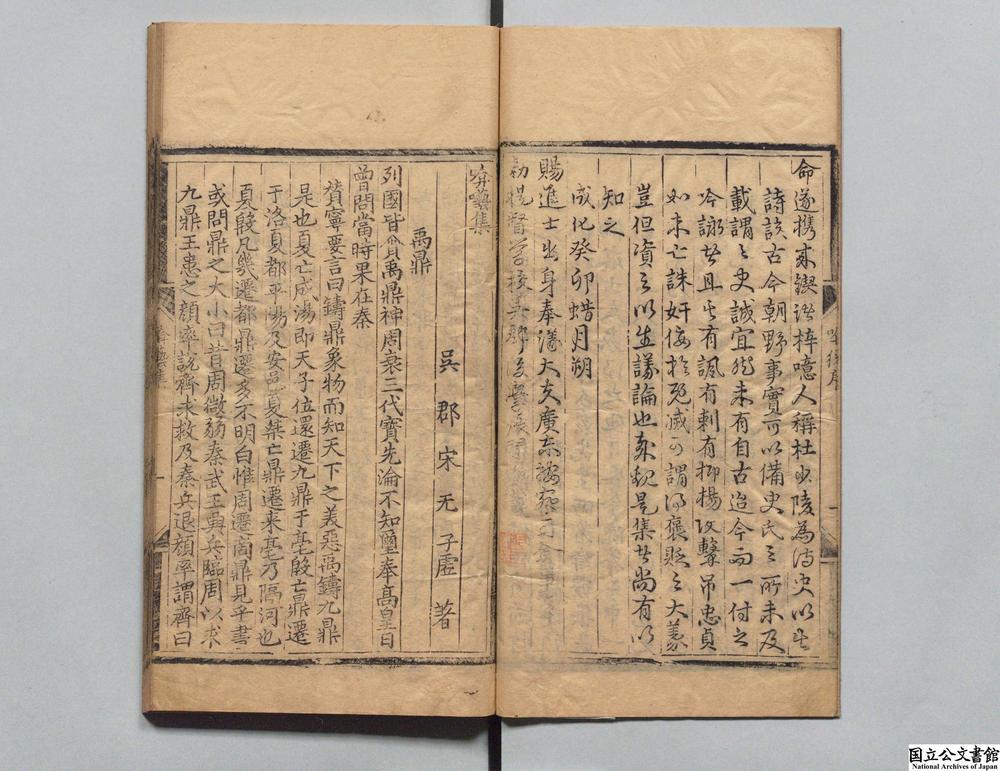 命遂携來鋟諸梓噫人稱杜少陵為詩史以其
詩該古今朝野事實可以備史氏之所未及
載謂之史誠宜然未有自古迄今而一付之
吟詠者且其有諷有刺有抑揚攻擊吊忠貞
如未亡誅奸佞於既滅可謂得褒貶之大義
豈但資之以生議論也哉觀是集者尚有以
知之
成化癸卯蜡月朔
賜進士出身奉議大夫廣東按察司僉事奉
勑提督學校
啽囈集
吳郡宋无子虛著
禹鼎
列國皆貪禹鼎神周衰三代寶先淪不知璽奉高皇日
曾問當時果在秦
贊寧要言曰鑄鼎象物而知天下之美惡禹鑄九鼎
是也夏亡成湯即天子位還遷九鼎于亳殷亡鼎遷
于洛夏都平陽及安邑夏桀亡鼎遷來亳乃隔河也
夏殷凡幾遷都鼎遷多不明白惟周遷商鼎見乎書
或問鼎之大小曰昔周微弱秦武王興兵臨周以求
九鼎王患之顏率說齊求救及秦兵退顏率謂齊曰
啽囈集
一
国立公文書館
National Archives of Japan